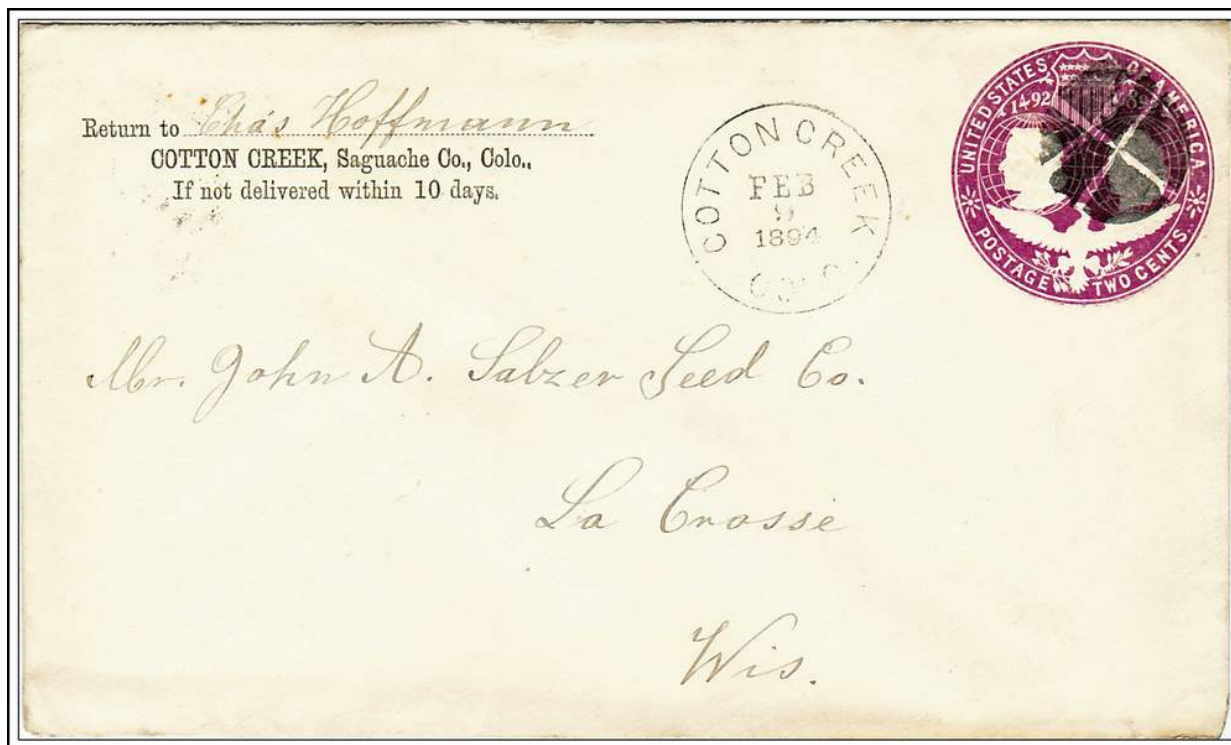 Return to Chas Hoffmann
COTTON CREEK, Saguache Co., Colo.,
If not delivered within 10 days.
COTTON CREEK
FEB
9
1894
COLO
UNITED STATES OF AMERICA
1492
POSTAGE TWO CENTS.
Mr. John A. Salzer Seed Co.
La Crosse
Wis.